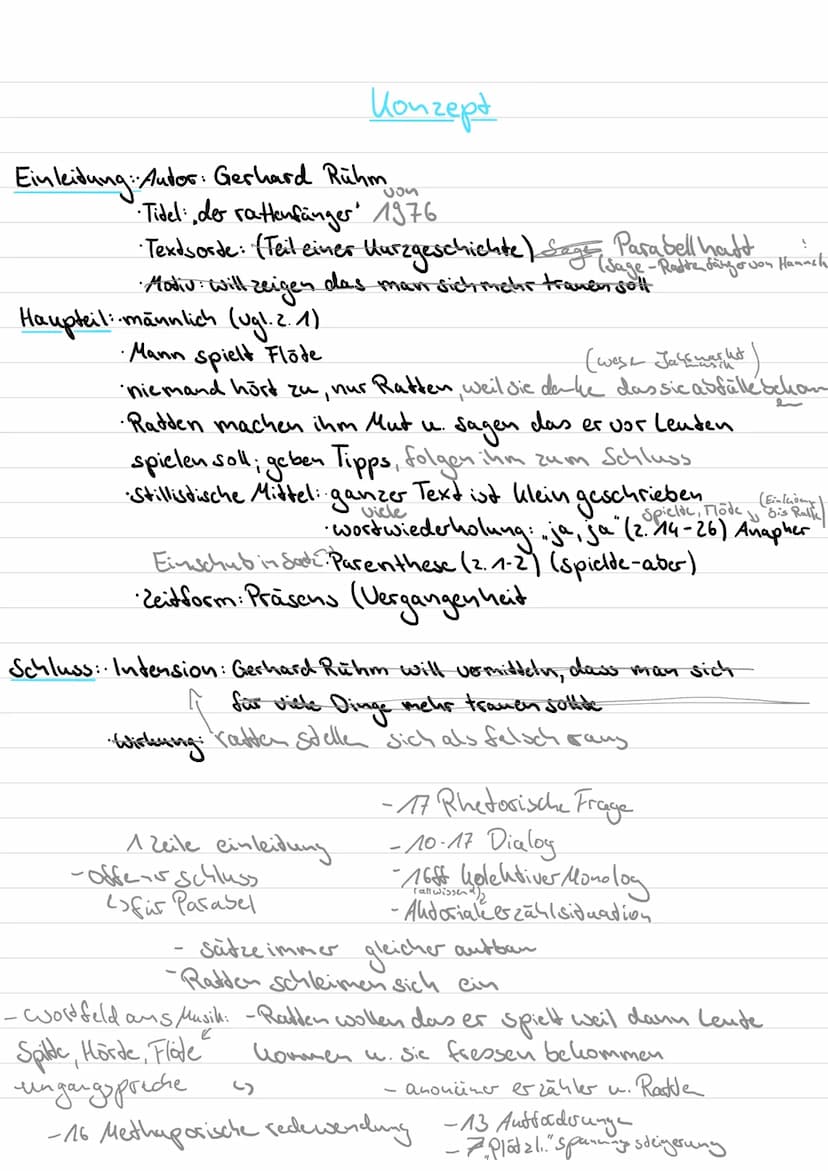 Konzept
Einleitung: · Autor: Gerhard Rühm
· Titel: „der rattenfänger' von 1976
· Textsorte: (Teil einer Kurzgeschichte) Sage, Parabellhaft
(Sage - Rattenfänger von Hameln
· Motiv: will zeigen das man sich mehr trauen soll
Hauptteil: · männlich (vgl. z. 1)
· Mann spielt Flöte
· niemand hört zu, nur Ratten, weil sie denke das sie abfälle bekommen
· Ratten machen ihm Mut u. sagen das er vor Leuten
spielen soll; geben Tipps, folgen ihm zum Schluss
· Stillistische Mittel: · ganzer Text ist klein geschrieben
spielte, Flöte (Einleitung bis Ratte)
· viele wortwiederholung: „ja, ja" (z. 14-26) Anapher
Einschub in Satz · Parenthese (z. 1-2) (spielte-aber)
· Zeitform: Präsens (Vergangenheit
Schluss: · Intension: Gerhard Rühm will vermitteln, dass man sich
für viele Dinge mehr trauen sollte
· Wirkung: ratten stellen sich als falsch raus
- 17 Rhetorische Frage
1 Zeile einleitung
- 10-17 Dialog
- offener schluss
- 16ff kolektiver Monolog
↳ für Parabel
(allwissend)
- Autoriale erzählsituation
- Sätze immer gleicher aufbau
- Ratten schleimen sich ein
- Wortfeld aus Musik: - Ratten wollen das er spielt weil dann Leute
Spilte, Hörte, Flöte kommen u. sie fressen bekommen
- umgangsprache ↳ - anonümer erzähler u. Ratte
- 16 Methaporische redewendung - 13 Aufforderunge
- 7 „Plötzl." Spannungssteigerung